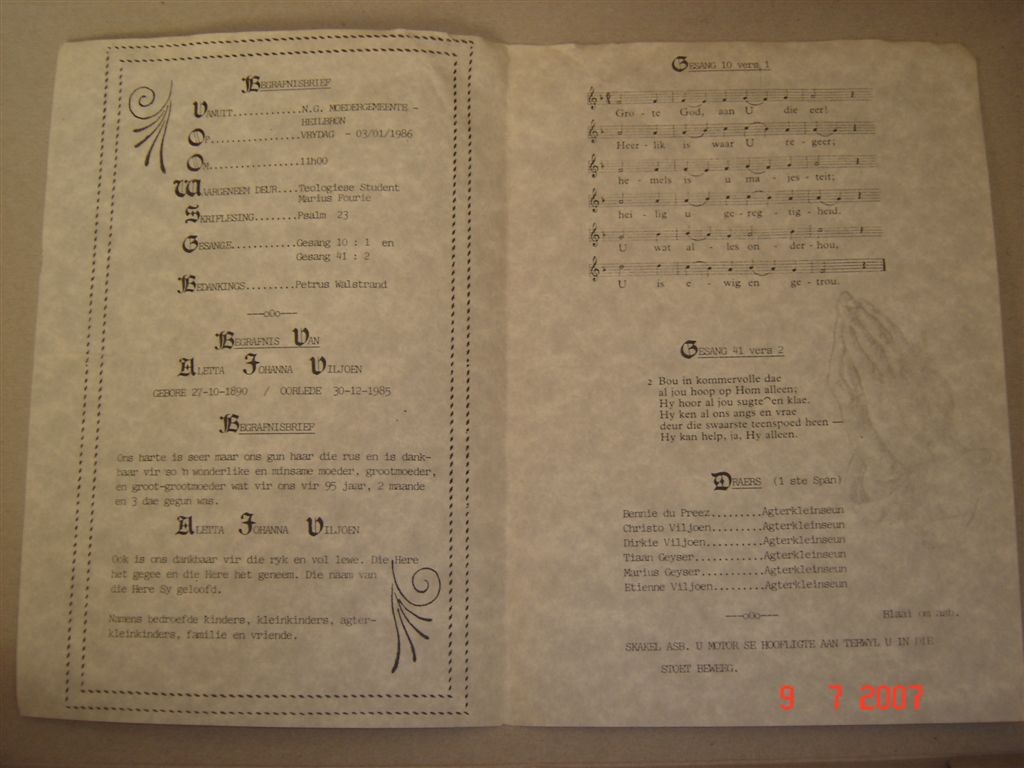 BEGRAFNISBRIEF
VANUIT............N.G. MOEDERGEMEENTE -
HEILBRON
OP................VRYDAG - 03/01/1986
OM................11h00
WAARGENEEM DEUR....Teologiese Student
Marius Fourie
SKRIFLESING........Psalm 23
GESANGE............Gesang 10 : 1 en
Gesang 41 : 2
BEDANKINGS.........Petrus Walstrand
---oOo---
BEGRAFNIS VAN
ALETTA JOHANNA VILJOEN
GEBORE 27-10-1890 / OORLEDE 30-12-1985
BEGRAFNISBRIEF
Ons harte is seer maar ons gun haar die rus en is dank-
baar vir so 'n wonderlike en minsame moeder, grootmoeder,
en groot-grootmoeder wat vir ons vir 95 jaar, 2 maande
en 3 dae gegun was.
ALETTA JOHANNA VILJOEN
Ook is ons dankbaar vir die ryk en vol lewe. Die Here
het gegee en die Here het geneem. Die naam van
die Here Sy geloofd.
Namens bedroefde kinders, kleinkinders, agter-
kleinkinders, familie en vriende.
GESANG 10 vers 1
Gro - te God, aan U die eer!
Heer - lik is waar U re - geer;
he - mels is u ma - jes - teit;
hei - lig u ge - reg - tig - heid.
U wat al - les on - der - hou,
U is e - wig en ge - trou.
GESANG 41 vers 2
2 Bou in kommervolle dae
al jou hoop op Hom alleen;
Hy hoor al jou sugte^en klae.
Hy ken al ons angs en vrae
deur die swaarste teenspoed heen —
Hy kan help, ja, Hy alleen.
DRAERS (1 ste Span)
Bennie du Preez.........Agterkleinseun
Christo Viljoen.........Agterkleinseun
Dirkie Viljoen..........Agterkleinseun
Tiaan Geyser............Agterkleinseun
Marius Geyser...........Agterkleinseun
Etienne Viljoen.........Agterkleinseun
---oOo---
Blaai om asb.
SKAKEL ASB. U MOTOR SE HOOFLIGTE AAN TERWYL U IN DIE
STOET BEWEEG.
9 7 2007